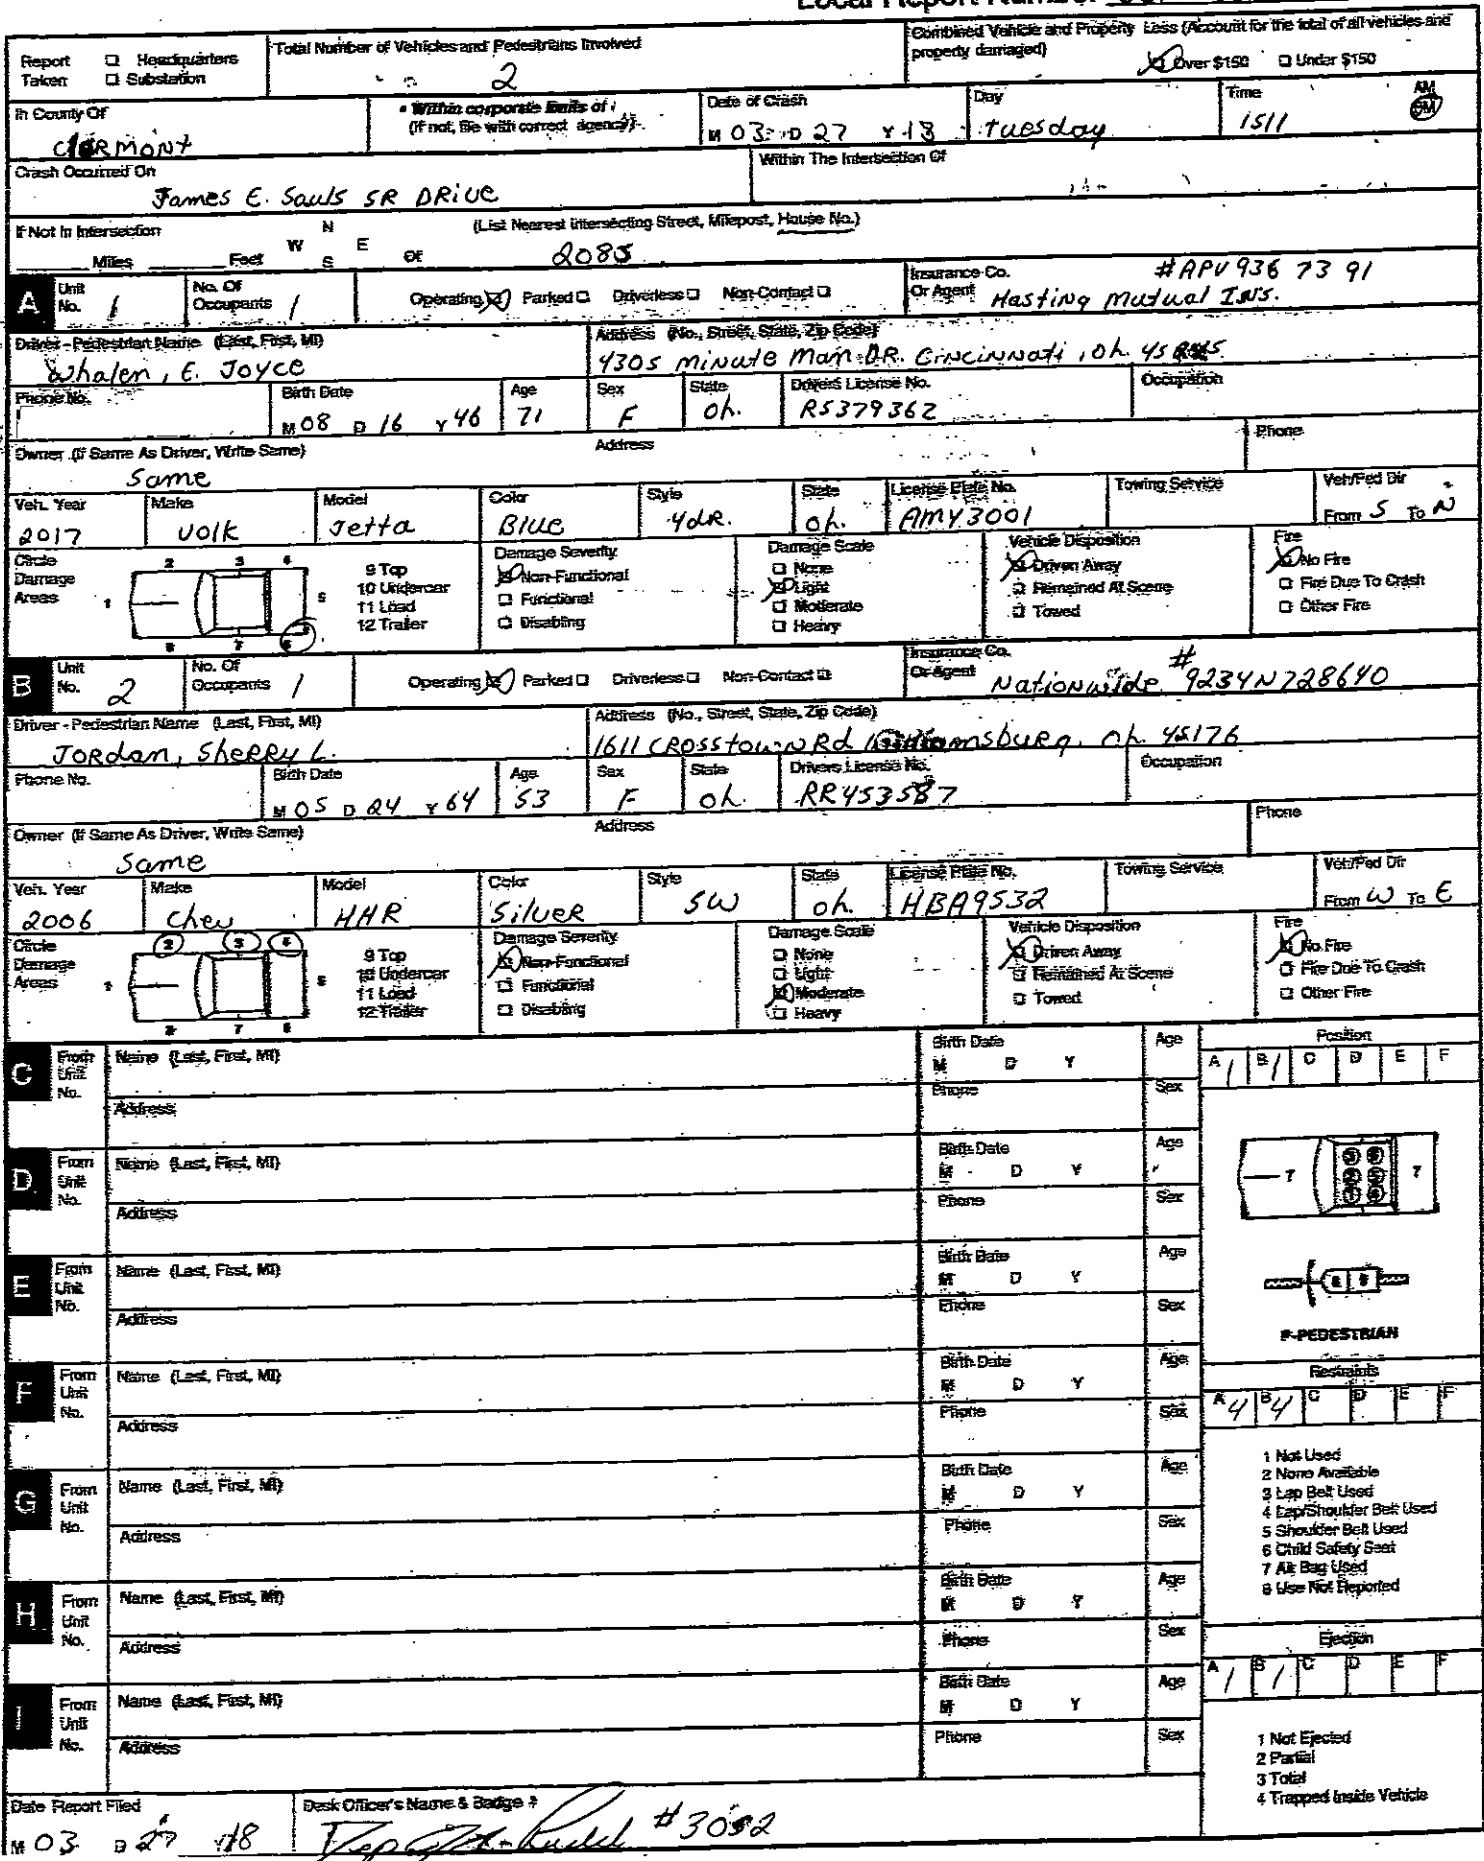 Local Report Number
Report Taken ☐ Headquarters ☐ Substation
Total Number of Vehicles and Pedestrians Involved
2
Combined Vehicle and Property Loss (Account for the total of all vehicles and property damaged)
☒ Over $150 ☐ Under $150
In County Of
Clermont
• Within corporate limits of
(If not, file with correct agency)
Date of Crash
M 03 D 27 Y 18
Day
Tuesday
Time
1511
AM
PM
Crash Occurred On
James E. Sauls SR DRIVE
Within The Intersection Of
If Not In Intersection
Miles Feet N W E S Of
(List Nearest Intersecting Street, Milepost, House No.)
2085
A Unit No. 1
No. Of Occupants 1
Operating ☒ Parked ☐ Driverless ☐ Non-Contact ☐
Insurance Co. Or Agent
#APV 936 73 91
Hasting Mutual INS.
Driver - Pedestrian Name (Last, First, MI)
Whalen, E. Joyce
Address (No., Street, State, Zip Code)
4305 Minute Man DR. Cincinnati, Oh.
Phone No.
Birth Date
M 08 D 16 Y 46
Age
71
Sex
F
State
Oh.
Drivers License No.
RS379362
Occupation
Owner (If Same As Driver, Write Same)
Same
Address
Phone
Veh. Year
2017
Make
Volk
Model
Jetta
Color
Blue
Style
4dR.
State
Oh.
License Plate No.
AMY3001
Towing Service
Veh/Ped Dir
From S To N
Circle Damage Areas
1 2 3 4 5 6 7 8
9 Top
10 Undercar
11 Load
12 Trailer
Damage Severity
☒ Non-Functional
☐ Functional
☐ Disabling
Damage Scale
☐ None
☒ Light
☐ Moderate
☐ Heavy
Vehicle Disposition
☒ Driven Away
☐ Remained At Scene
☐ Towed
Fire
☒ No Fire
☐ Fire Due To Crash
☐ Other Fire
B Unit No. 2
No. Of Occupants 1
Operating ☒ Parked ☐ Driverless ☐ Non-Contact ☐
Insurance Co. Or Agent
Nationwide # 9234N728640
Driver - Pedestrian Name (Last, First, MI)
Jordan, Sherry L.
Address (No., Street, State, Zip Code)
1611 Crosstown Rd Williamsburg, Oh. 45176
Phone No.
Birth Date
M 05 D 24 Y 64
Age
53
Sex
F
State
Oh.
Drivers License No.
RR453587
Occupation
Owner (If Same As Driver, Write Same)
Same
Address
Phone
Veh. Year
2006
Make
Chev
Model
HHR
Color
Silver
Style
SW
State
Oh.
License Plate No.
HBA9532
Towing Service
Veh/Ped Dir
From W To E
Circle Damage Areas
1 2 3 4 5 6 7 8
9 Top
10 Undercar
11 Load
12 Trailer
Damage Severity
☒ Non-Functional
☐ Functional
☐ Disabling
Damage Scale
☐ None
☐ Light
☒ Moderate
☐ Heavy
Vehicle Disposition
☒ Driven Away
☐ Remained At Scene
☐ Towed
Fire
☒ No Fire
☐ Fire Due To Crash
☐ Other Fire
C From Unit No.
Name (Last, First, MI)
Address
Birth Date M D Y
Age
Phone
Sex
Position
A 1 B 1 C D E F
D From Unit No.
Name (Last, First, MI)
Address
Birth Date M D Y
Age
Phone
Sex
7 7
E From Unit No.
Name (Last, First, MI)
Address
Birth Date M D Y
Age
Phone
Sex
P-PEDESTRIAN
F From Unit No.
Name (Last, First, MI)
Address
Birth Date M D Y
Age
Phone
Sex
Restraints
A 4 B 4 C D E F
G From Unit No.
Name (Last, First, MI)
Address
Birth Date M D Y
Age
Phone
Sex
1 Not Used
2 None Available
3 Lap Belt Used
4 Lap/Shoulder Belt Used
5 Shoulder Belt Used
6 Child Safety Seat
7 Air Bag Used
8 Use Not Reported
H From Unit No.
Name (Last, First, MI)
Address
Birth Date M D Y
Age
Phone
Sex
Ejection
A 1 B 1 C D E F
I From Unit No.
Name (Last, First, MI)
Address
Birth Date M D Y
Age
Phone
Sex
1 Not Ejected
2 Partial
3 Total
4 Trapped Inside Vehicle
Date Report Filed
M 03 D 27 Y 18
Desk Officer's Name & Badge #
Dep.